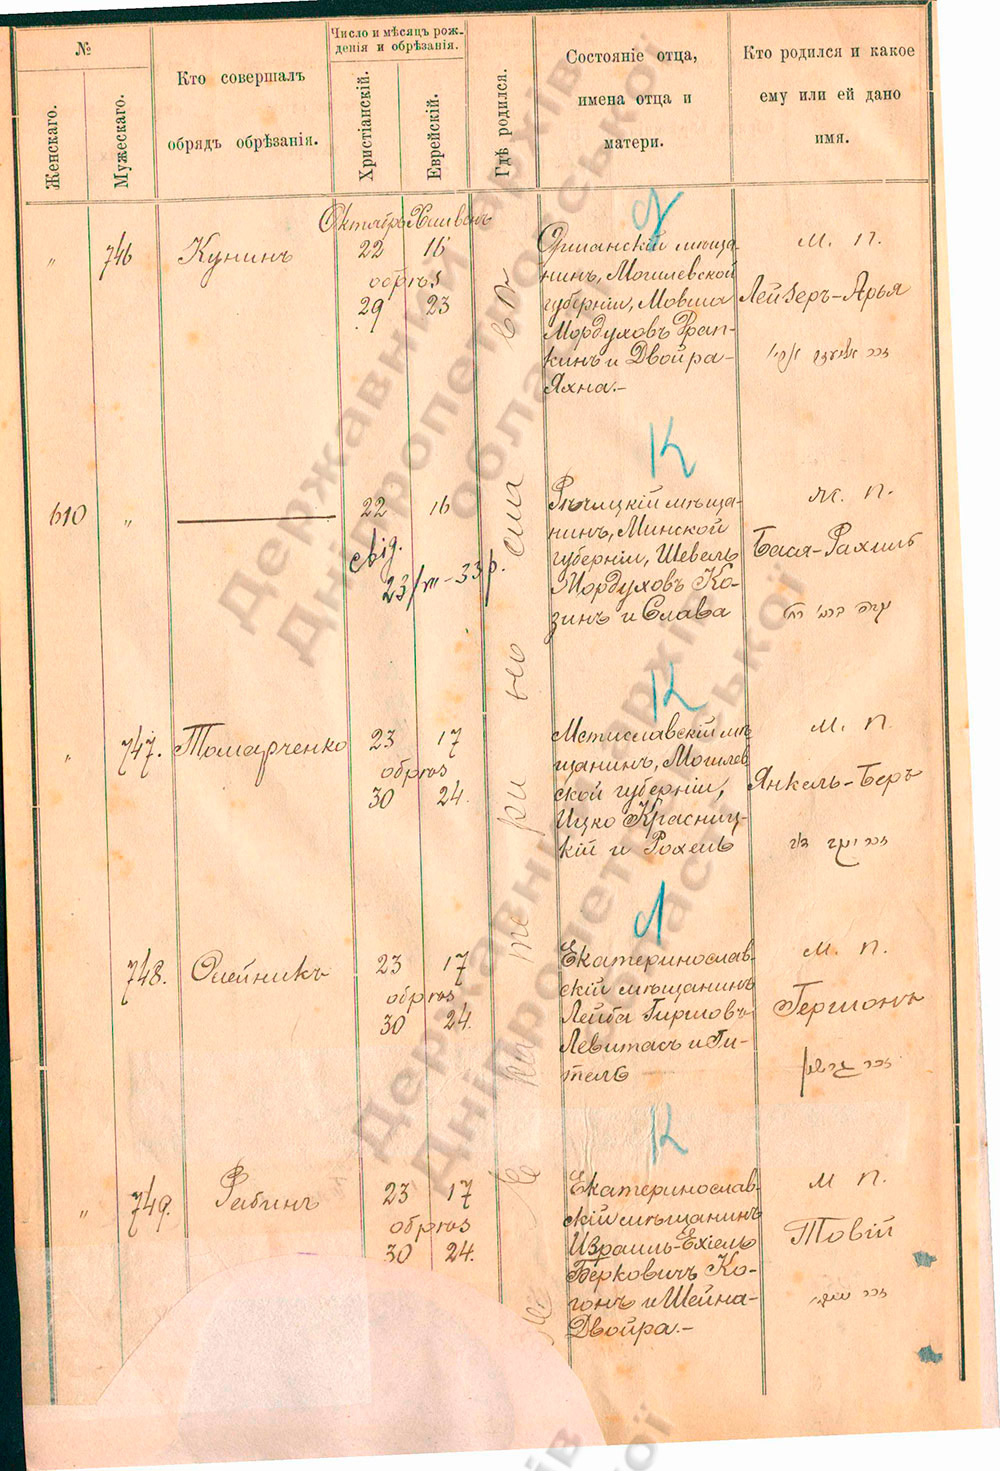 №
Женскаго.
Мужескаго.
Кто совершалъ
обрядъ обрѣзанія.
Число и мѣсяцъ рож-
денія и обрѣзанія.
Христіанскій.
Еврейскій.
Гдѣ родился.
Состояніе отца,
имена отца и
матери.
Кто родился и какое
ему или ей дано
имя.
Октябрь Хешвонъ
" 746 Кунинъ 22 16
обрѣз
29 23
мѣщa-
нинъ, Могилевской
губерніи, Мовша
Мордуховъ Фрап-
кинъ и Двойра-
Яхна.-
м. п.
Лейзеръ-Арья
К
610 " 22 16
свід.
23/VII-33 р.
Рѣчицкій мѣща-
нинъ, Минской
губерніи, Шевель
Мордуховъ Ко-
зинъ и Слава
ж. п.
Бася-Рахиль
К
" 747. Томарченко 23 17
обрѣз
30 24.
Мстиславскій мѣ-
щанинъ, Могилев
ской губерніи,
Ицко Красниц-
кій и Рохель
м. п.
Янкель-Беръ
Л
748. Олейникъ 23 17
обрѣз
30 24.
Екатеринослав-
скій мѣщанинъ
Лейба Гиршовъ
Левитасъ и Ги-
тель
м. п.
Гершонъ
К
" 749. Рабинъ 23 17
обрѣз
30 24.
Екатеринослав-
скій мѣщанинъ
Израиль-Ехіель
Берковичъ Ко-
гонъ и Шейна-
Двойра.-
м п.
Товій
Державний архів
Дніпропетровської
області
Державний архів
Дніпропетровської
області